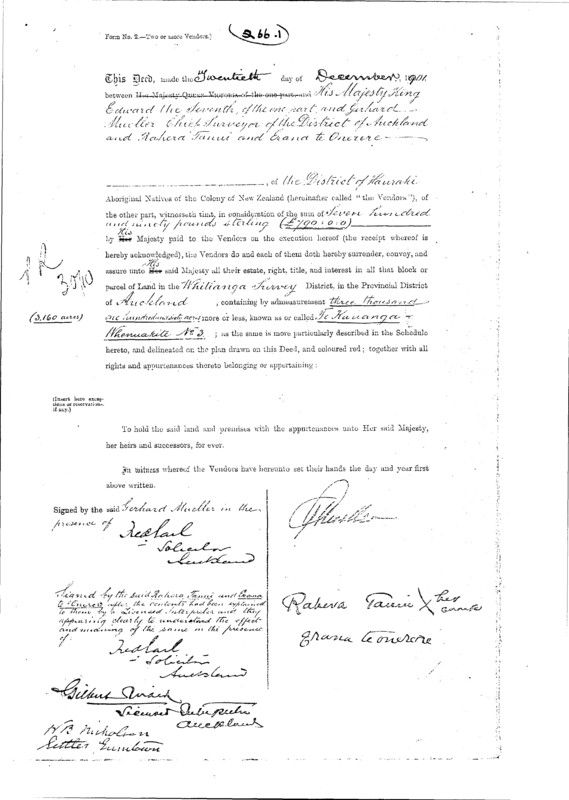 Form No. 2.—Two or more Vendors.]
266.1
This Deed, made the Twentieth day of December, 1901.
between Her Majesty Queen Victoria of the one part, and His Majesty King
Edward the Seventh, of the one part, and Gerhard
Mueller Chief Surveyor of the District of Auckland
and Rahera Tanui and Erana te Onerere
, of the District of Hauraki
Aboriginal Natives of the Colony of New Zealand (hereinafter called "the Vendors"), of
the other part, witnesseth that, in consideration of the sum of Seven hundred
and ninety pounds sterling (£790:0:0)
His
by Her Majesty paid to the Vendors on the execution hereof (the receipt whereof is
hereby acknowledged), the Vendors do and each of them doth hereby surrender, convey, and
His
assure unto Her said Majesty all their estate, right, title, and interest in all that block or
parcel of Land in the Whitianga Survey District, in the Provincial District
of Auckland, containing by admeasurement three thousand
(3,160 acres)
one hundred and sixty acres more or less, known as or called Te Kauanga
Whenuakite No 3; as the same is more particularly described in the Schedule
hereto, and delineated on the plan drawn on this Deed, and coloured red; together with all
rights and appurtenances thereto belonging or appertaining:
(Insert here exceptions or reservations, if any.)
To hold the said land and premises with the appurtenances unto Her said Majesty,
her heirs and successors, for ever.
In witness whereof the Vendors have hereunto set their hands the day and year first
above written.
Signed by the said Gerhard Mueller in the
presence of
Solicitor
Auckland
GMueller
Signed by the said Rahera Tanui and Erana
te Onerere after the contents had been explained
to them by a Licensed Interpreter and they
appearing clearly to understand the effect
and meaning of the same in the presence
of:
Solicitor
Auckland
Rahera Tanui X her mark
Erana te onerere
Gilbert Mair
Licensed Interpreter
Auckland
H B Nicholson
Settler Gumtown